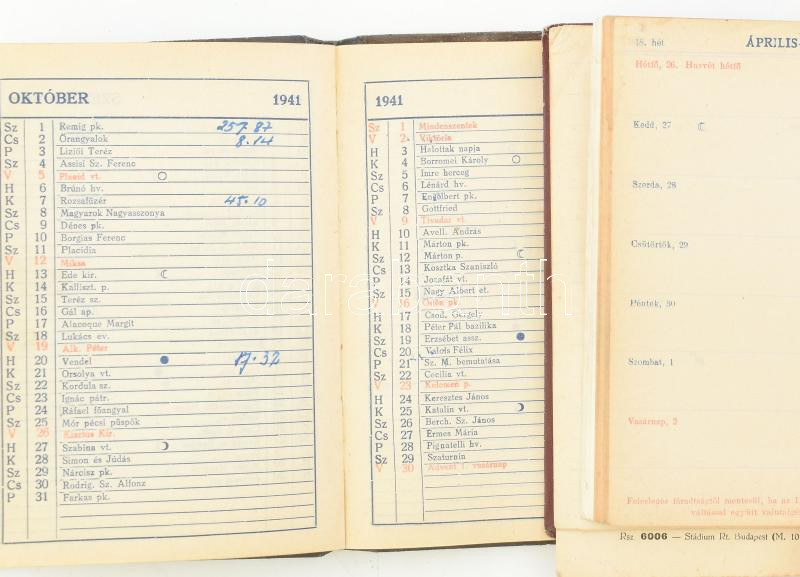 OKTÓBER 1941
Sz 1 Remig pk. 257.87
Cs 2 Őrangyalok 8.14
P 3 Liziői Teréz
Sz 4 Assisi Sz. Ferenc
V 5 Placid vt.
H 6 Brúnó hv.
K 7 Rózsafűzér 45.10
Sz 8 Magyarok Nagyasszonya
Cs 9 Dénes pk.
P 10 Borgias Ferenc
Sz 11 Placidia
V 12 Miksa
H 13 Ede kir.
K 14 Kalliszt. p.
Sz 15 Teréz sz.
Cs 16 Gál ap.
P 17 Alacoque Margit
Sz 18 Lukács ev.
V 19 Alk. Péter
H 20 Vendel 17.32
K 21 Orsolya vt.
Sz 22 Kordula sz.
Cs 23 Ignác pátr.
P 24 Ráfael főangyal
Sz 25 Mór pécsi püspök
V 26 Krisztus Kir.
H 27 Szabina vt.
K 28 Simon és Júdás
Sz 29 Nárcisz pk.
Cs 30 Rodrig. Sz. Alfonz
P 31 Farkas pk.
1941
Sz 1 Mindenszentek
V 2 Viktória
H 3 Halottak napja
K 4 Borromei Károly
Sz 5 Imre herceg
Cs 6 Lénárd hv.
P 7 Engelbert pk.
Sz 8 Gottfried
V 9 Tivadar vt.
H 10 Avell. András
K 11 Márton pk.
Sz 12 Márton p.
Cs 13 Kosztka Szaniszló
P 14 Jozafát vt.
Sz 15 Nagy Albert et.
V 16 Ödön pk.
H 17 Csod. Gergely
K 18 Péter Pál bazilika
Sz 19 Erzsébet assz.
Cs 20 Valois Félix
P 21 Sz. M. bemutatása
Sz 22 Cecília vt.
V 23 Kelemen p.
H 24 Keresztes János
K 25 Katalin vt.
Sz 26 Berch. Sz. János
Cs 27 Ermes Mária
P 28 Pignatelli hv.
Sz 29 Szaturnin
V 30 Advent 1. vasárnap
18. hét ÁPRILIS-
Hétfő, 26. Husvét hétfő
Kedd, 27
Szerda, 28
Csütörtök, 29
Péntek, 30
Szombat, 1
Vasárnap, 2
Felesleges fáradtságtól mentesül, ha az
váltással együtt
Rsz. 6006 — Stádium Rt. Budapest (M. 10
darabanth